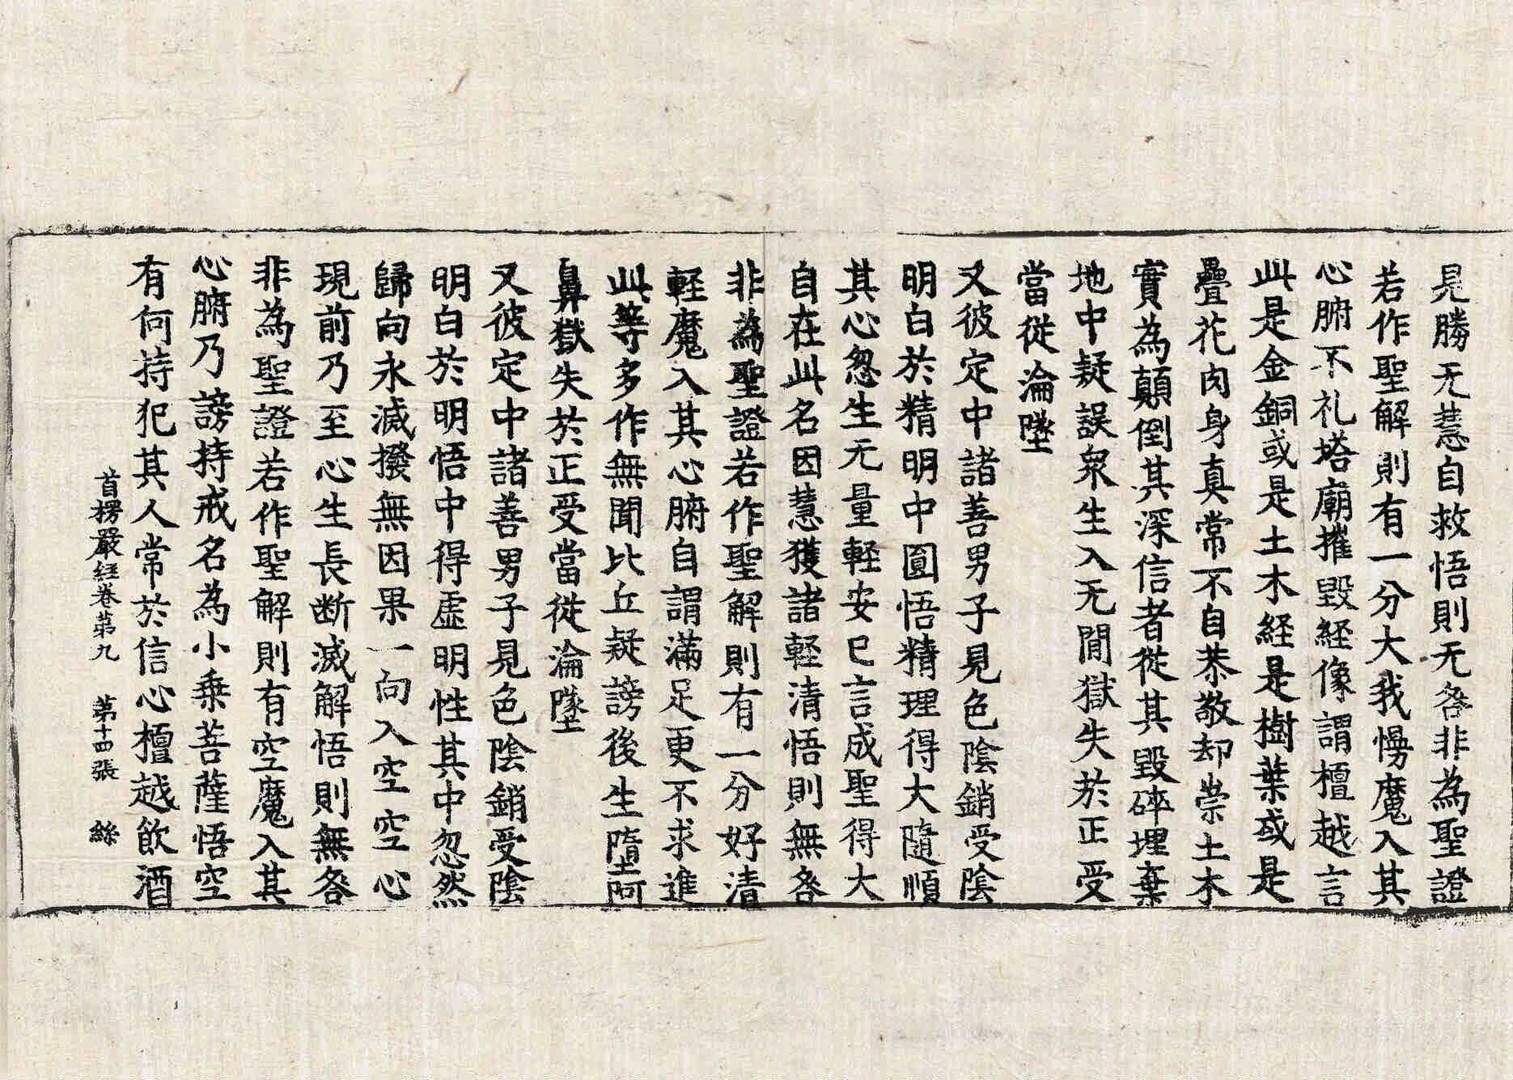 是勝无慧自救悟則无咎非為聖證
若作聖解則有一分大我慢魔入其
心腑不礼塔廟摧毀経像謂檀越言
此是金銅或是土木経是樹葉或是
疊花肉身真常不自恭敬却崇土木
實為顛倒其深信者從其毀碎埋棄
地中疑誤衆生入无間獄失於正受
當從淪墜
又彼定中諸善男子見色陰銷受陰
明白於精明中圓悟精理得大隨順
其心忽生无量軽安已言成聖得大
自在此名因慧獲諸軽清悟則無咎
非為聖證若作聖解則有一分好清
軽魔入其心腑自謂滿足更不求進
此等多作無聞比丘疑謗後生墮阿
鼻獄失於正受當從淪墜
又彼定中諸善男子見色陰銷受陰
明白於明悟中得虛明性其中忽然
歸向永滅撥無因果一向入空空心
現前乃至心生長断滅解悟則無咎
非為聖證若作聖解則有空魔入其
心腑乃謗持戒名為小乗菩薩悟空
有何持犯其人常於信心檀越飲酒
首楞嚴経卷苐九　苐十四張　絲